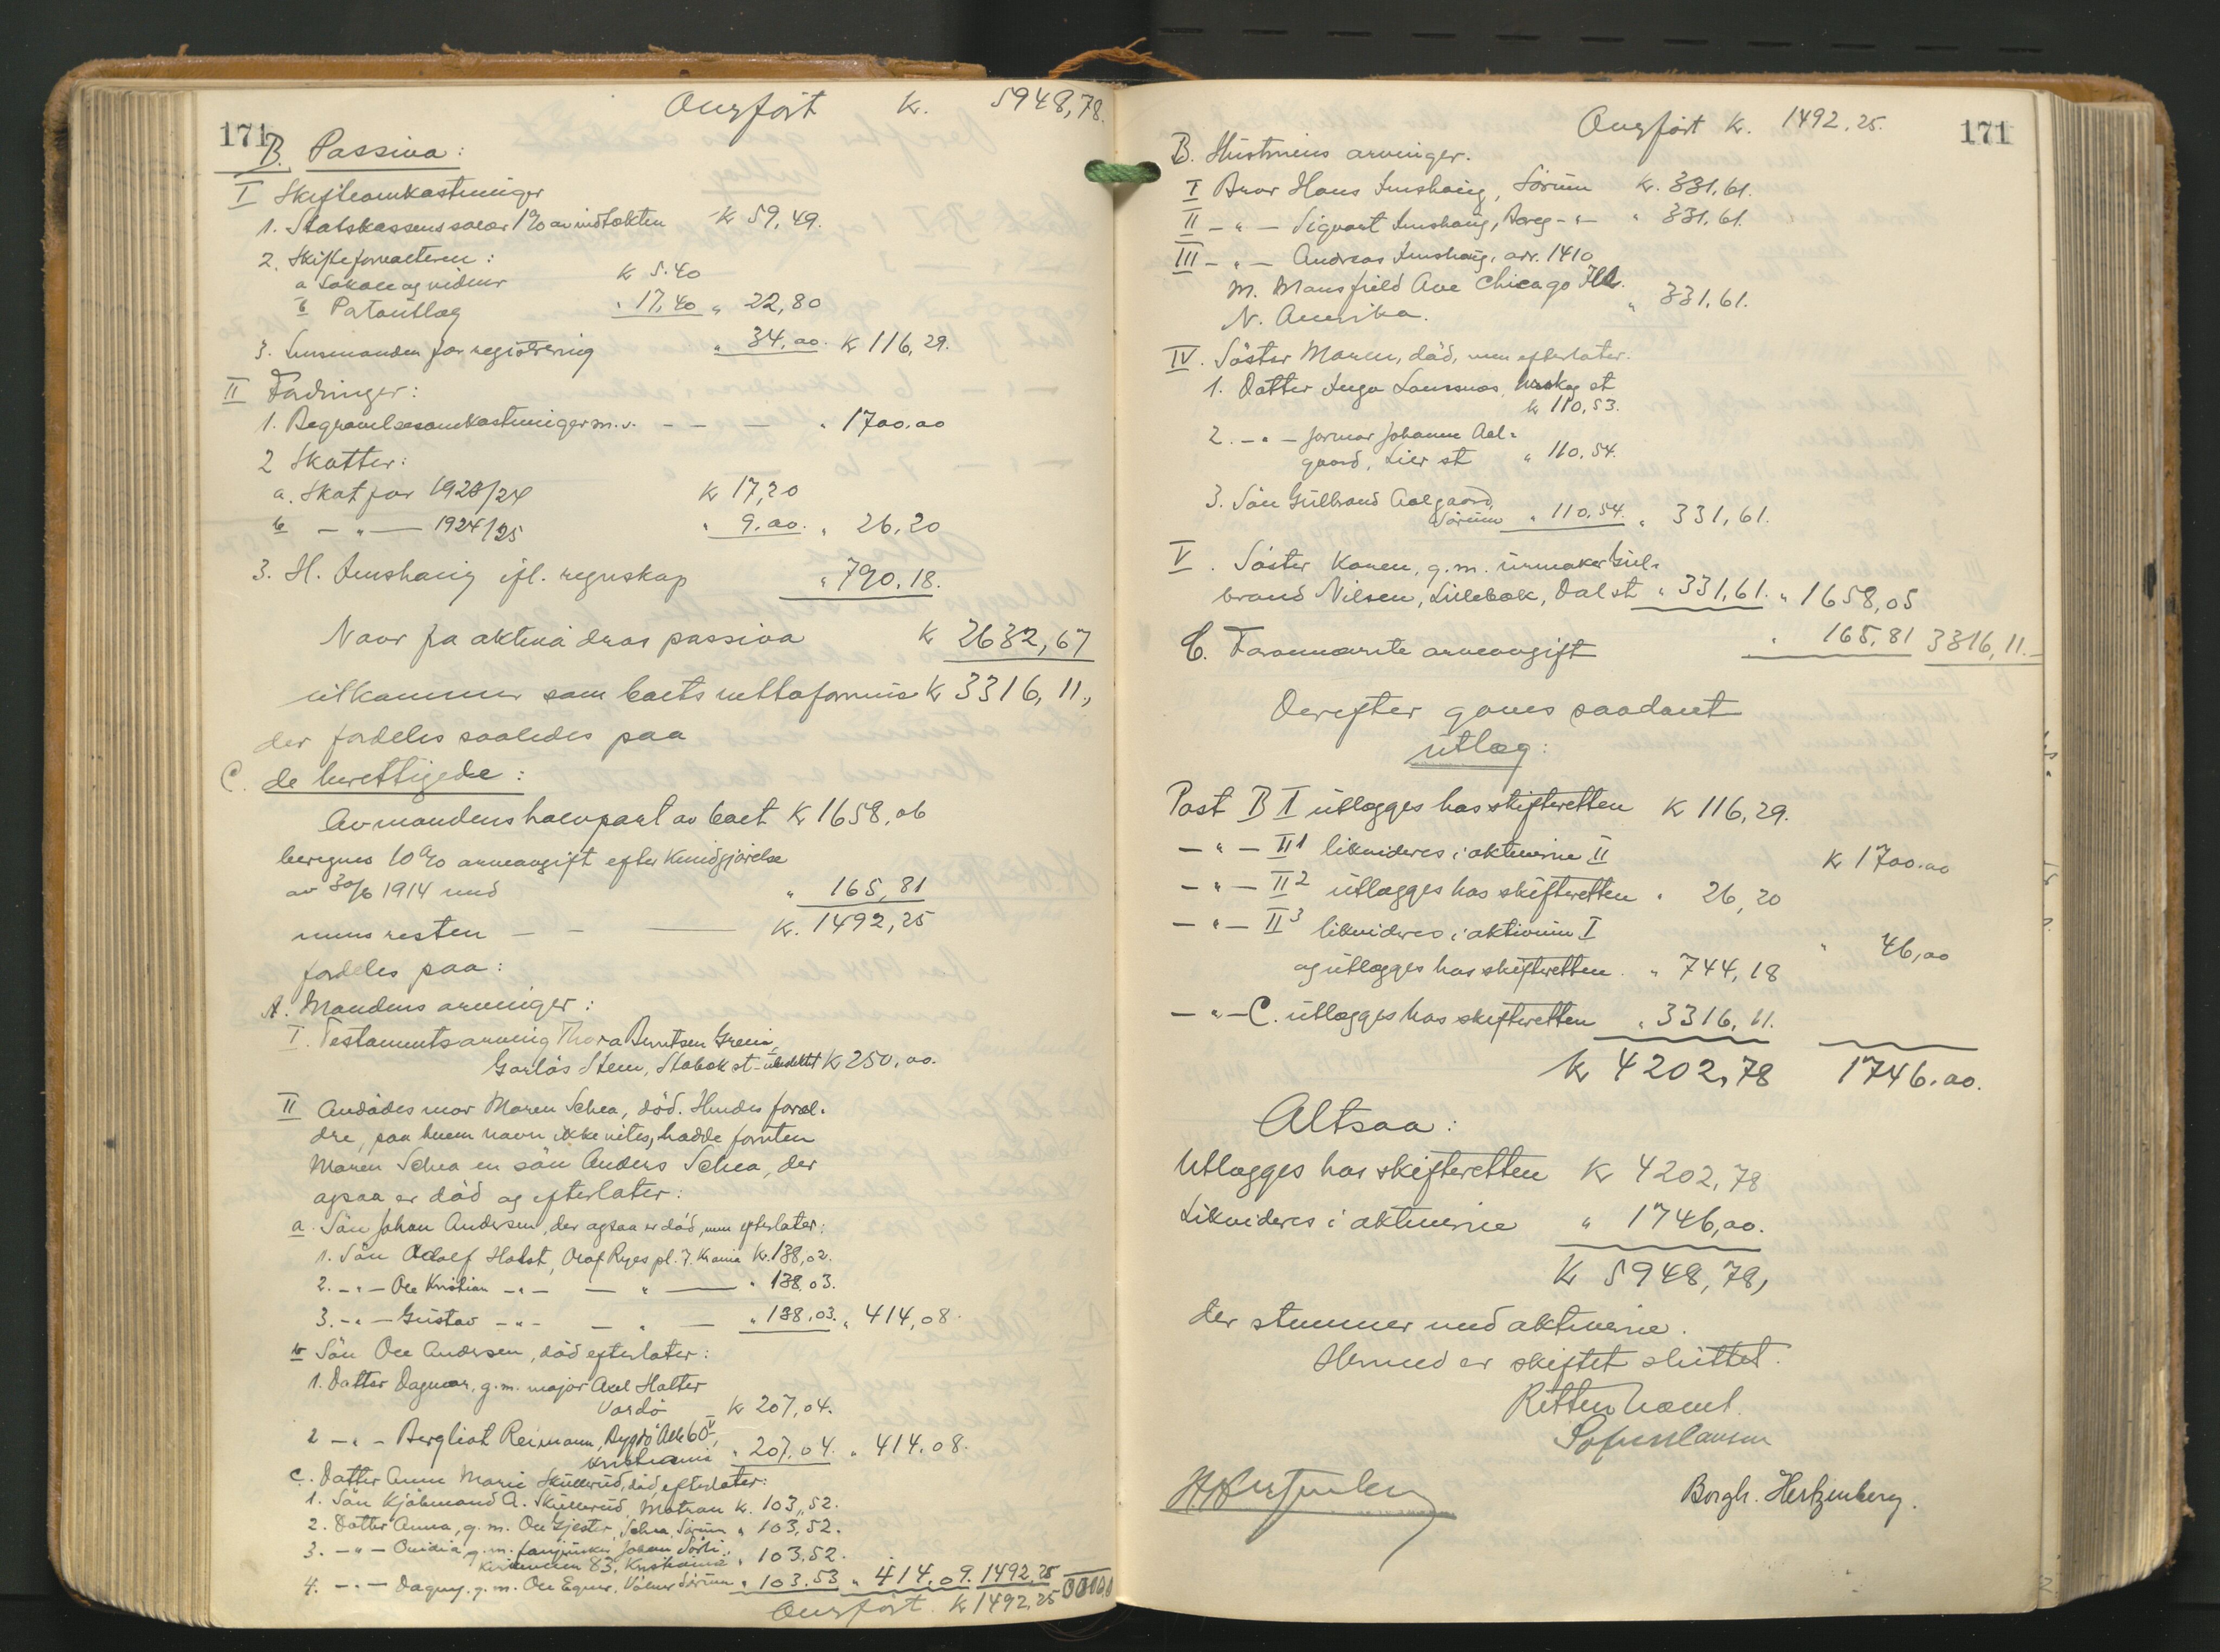 171
Overført k. 5948,78.
B. Passiva:
I Skifteomkostninger
1. Statskassens salær 1% av indtækten kr 59,49.
2. Skifteforvalteren:
a Lokale og vidner k 5.40
b Portoutlæg " 17,40 " 22,80
3. Lensmanden for registrering " 34,00. k 116,29.
II Fordringer:
1. Begravelsesomkostninger m.v. - - - " 1700.00
2 Skatter:
a. Skat for 1923/24 k 17,20
b - " - 1924/25 " 9.00. " 26,20
3. H. Impshaug ifl. regnskap " 790.18.
Naar fra aktiva dras passiva k 2632,67
utkommer som boets nettoformue k 3316,11,
der fordeles saaledes paa
C. de berettigede:
Av mandens halvpart av boet k 1658,06
beregnes 10% arveavgift efter kundgjørelse
av 30/6 1914 med " 165,81
mens resten - - - k. 1492,25
fordeles paa:
A. Mandens arvinger:
I. Testamentsarving Thora Berntsen Greni,
Stabæk st - k 250,00.
II Avdødes mor Maren Schea, død. Hendes foræl-
dre, paa hvem navn ikke vites, hadde foruten
Maren Schea en søn Anders Schea, der
ogsaa er død og efterlater:
a. Søn Johan Andersen, der ogsaa er død, men efterlater:
1. Søn Adolf Holst, Olaf Ryes pl. 7. Krania k. 138,02.
2. - " - Ole Kristian - " - - " - " 138,03.
3. - " - Gustav - " - - " - " 138,03. " 414,08.
b Søn Ole Andersen, død efterlater:
1. Datter Dagmar, g.m. major Axel Holter
Vardø - k 207,04.
2 - " - Bergliot Reimann, Bygdø Allé 60
Kristiania " 207.04. " 414.08.
c. Datter Anne Marie Skullerud, død, efterlater:
1. Søn Kjøbmand A. Skullerud, Matran k. 103,52.
2. Datter Anna, g.m. Ole Gjester, Schea, Sørum " 103,52.
3. - " - Ovidia g.m. Johan Sørli,
83, Kristiania " 103,52.
4. - " - Dagny, g.m. Ole Egner, Sørum " 103,53 " 414,09. 1492,25
Overført. k 1492,25
171
Overført k. 1492,25.
B. Hustruens arvinger.
I Bror Hans Impshaug, Sørum k. 331,61.
II - " - Sigvart Impshaug, - " - " 331,61.
III - " - Andreas Impshaug, adr. 1410
M. Mansfield Ave Chicago Ill.
N. Amerika. " 331,61.
IV. Søster Maren, død, men efterlater.
1. Datter Inga Laursnes, st
k 110,53.
2. - " - Johanne Aal-
gaard, Lier st " 110,54.
3. Søn Gulbrand Aalgaard,
Sørum " 110,54. " 331,61.
V. Søster Karen, g.m. urmaker Gul-
brand Nilsen, Lillebæk, Dal st " 331,61. " 1658,05
C. Forannævnte arveavgift " 165,81 3316,11.
Derefter gjøres saadant
utlæg:
Post B I utlægges hos skifteretten k 116,29.
- " - II 1 likvideres i aktiverne II k 1700.00
- " - II 2 utlægges hos skifteretten " 26,20
- " - II 3 likvideres i aktivum I " 46,00
og utlægges hos skifteretten. " 744,18
- " - C. utlægges hos skifteretten " 3316,11.
k 4202,78 1746.00.
Altsaa:
Utlægges hos skifteretten k 4202,78
Likvideres i aktiverne " 1746,00.
k 5948,78,
der stemmer med aktiverne.
Hermed er skiftet sluttet.
Retten hævet.
Borgh. Hertzenberg.